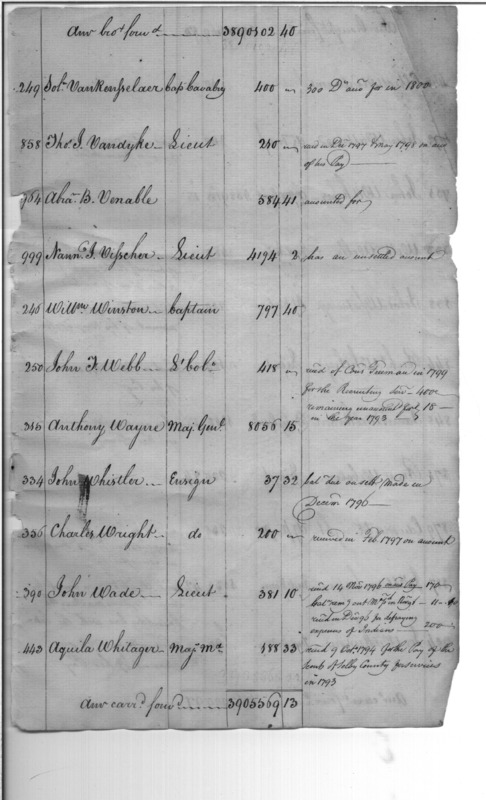 Amt bro't forw'd 3890502 40
249 Sol. Van Rensselaer Cap. Cavalry 400 " 300 Drs acc'd for in 1800
858 Tho. J. Vandyke Lieut 240 " rec'd in Dec 1797 & May 1798 on acc
of his Pay
Abra. B. Venable 584 41 accounted for
999 Nann. J. Visscher Lieut 4194 2 has an unsettled account
240 Willm Winston Captain 797 40
250 John F. Webb Lt Col. 418 " rec'd of Freeman in 1799
for the Recruiting Serv. 400
remaining unaccount for 18
in the year 1793
315 Anthony Wayne Maj. Genl. 8056 15
334 John Whistler Ensign 37 32 bal due on settl made in
Decem 1796
336 Charles Wright do 200 " received in Feb 1797 on account
390 John Wade Lieut 381 10 rec'd 14 Nov 1796 Pay 170
expences of Indians 200
443 Aquila Whitager Maj. 188 33 rec'd 9 Oct. 1794 for the Pay of the
Shelby County for services
in 1793
Amt carr'd forw'd 3905569 13